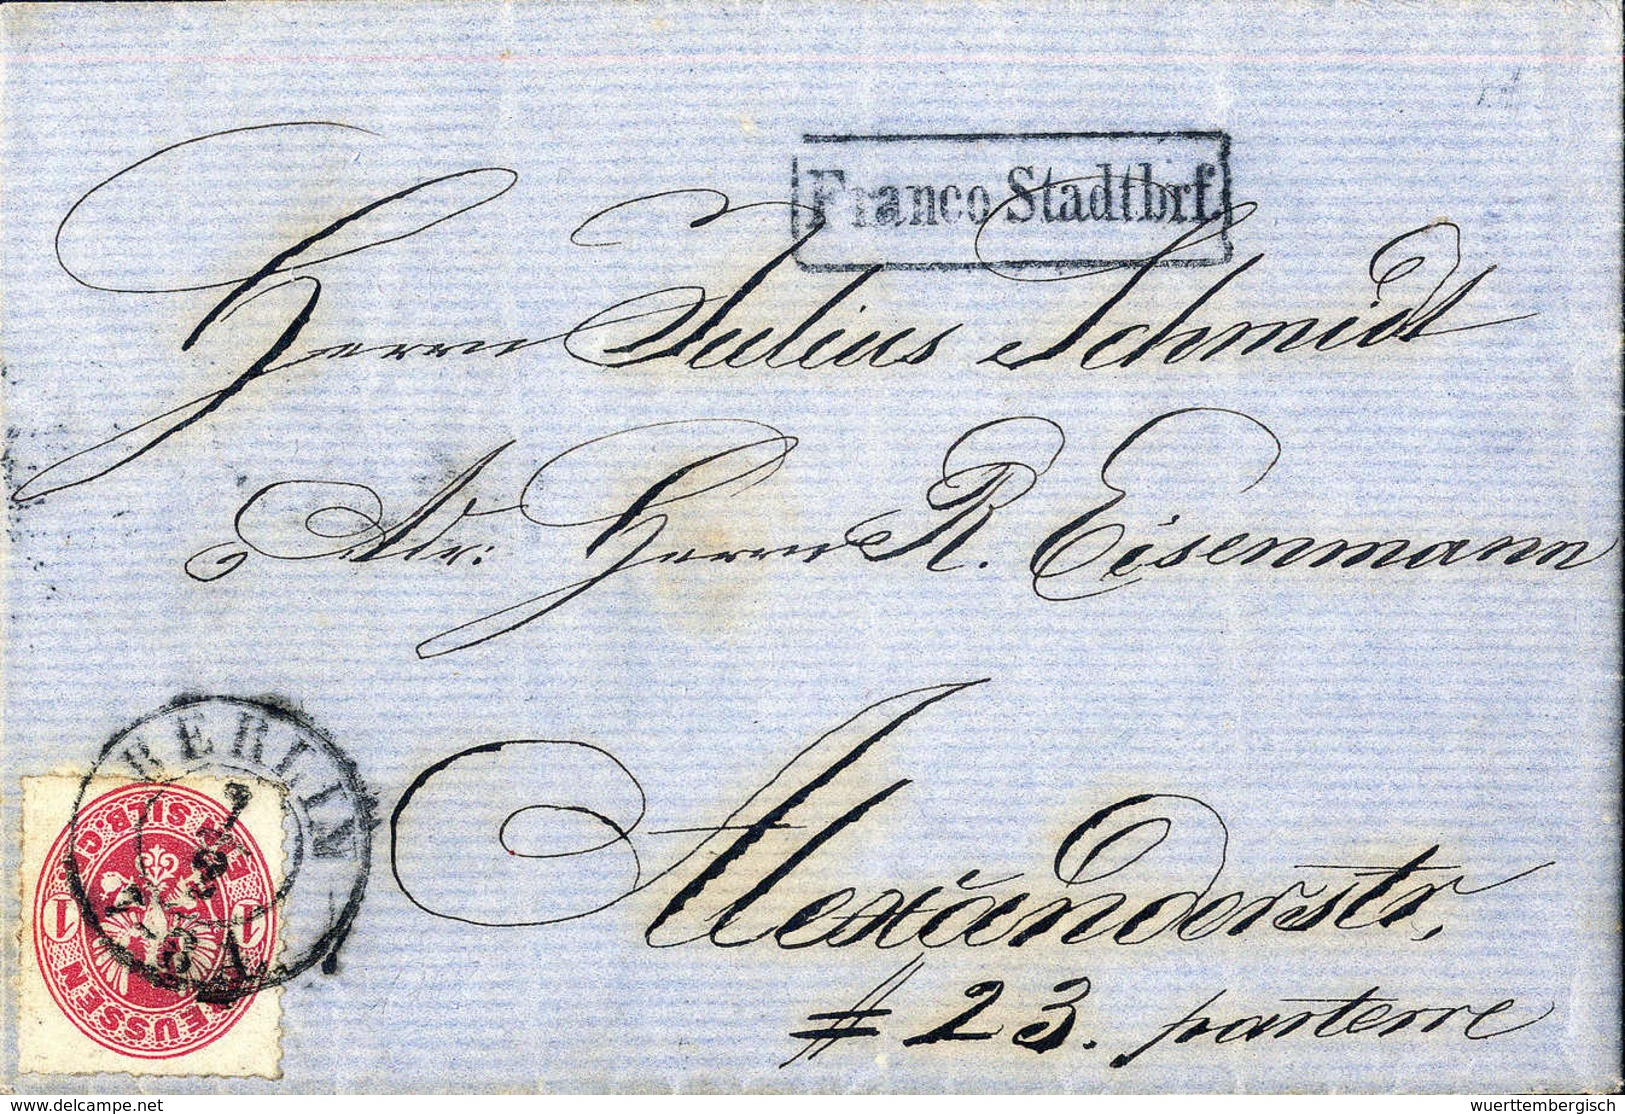 Franco Stadtbrf
Herrn Julius Schmidt
Adr: Herrn R. Eisenmann
Alexanderstr,
# 23. parterre
BERLIN
EIN SILB. GR.
1 1
PREUSSEN
www.delcampe.net
wuerttembergisch